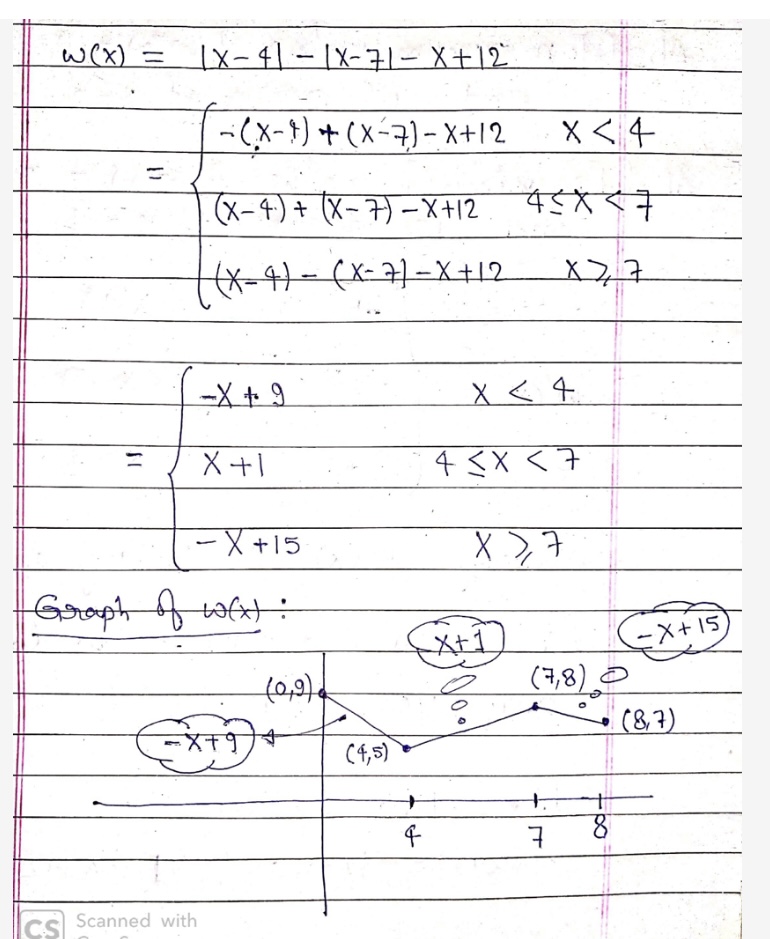 w(x) = |x-4| - |x-7| - x+12
= { -(x-4) + (x-7) - x+12    x < 4
(x-4) + (x-7) - x+12    4 ≤ x < 7
(x-4) - (x-7) - x+12    x ≥ 7
= { -x + 9    x < 4
x + 1    4 ≤ x < 7
-x + 15    x ≥ 7
Graph of w(x) :
x+1
-x+15
(0,9)
(7,8)
(8,7)
-x+9
(4,5)
4 7 8
CS Scanned with